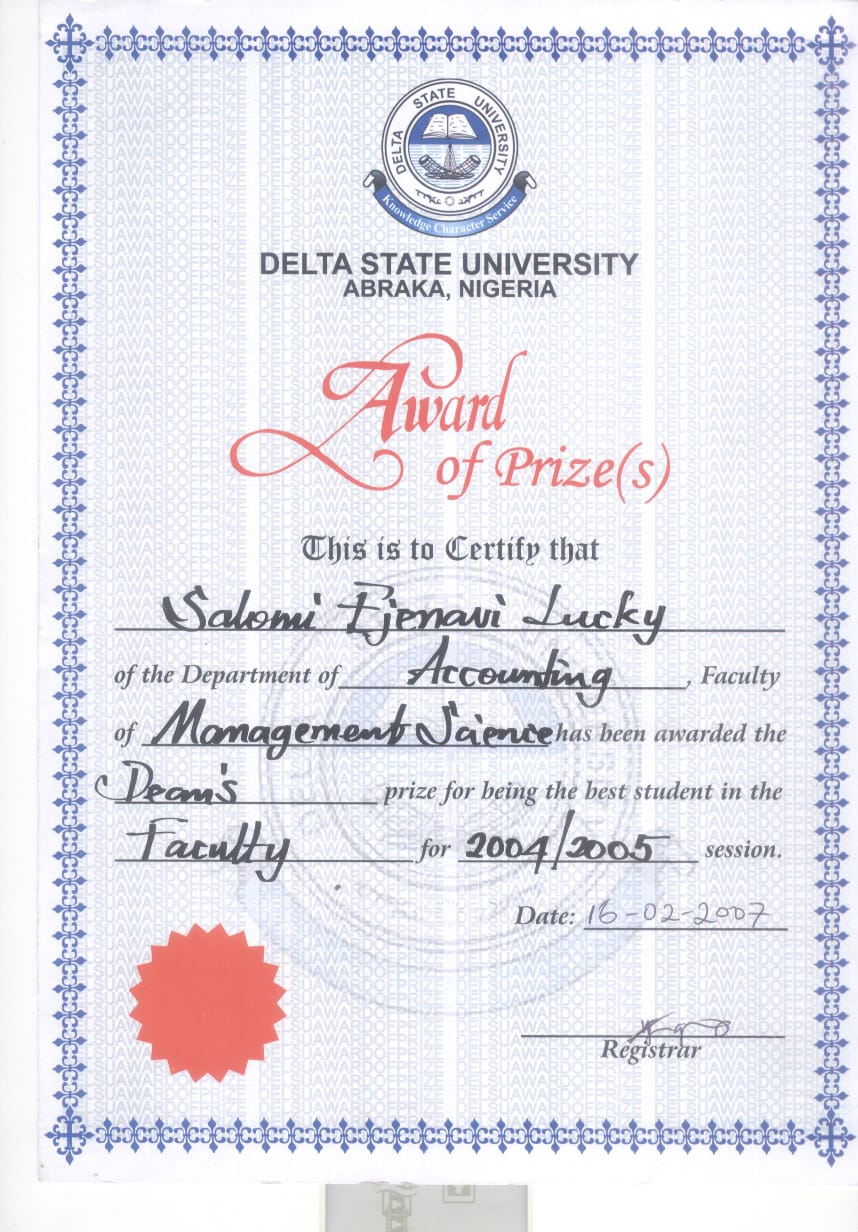 DELTA STATE UNIVERSITY
Knowledge Character Service
DELTA STATE UNIVERSITY
ABRAKA, NIGERIA
Award
of Prize(s)
This is to Certify that
Salomi Ejenavi Lucky
of the Department of Accounting, Faculty
of Management Science has been awarded the
Dean's prize for being the best student in the
Faculty for 2004/2005 session.
Date: 16-02-2007
Registrar